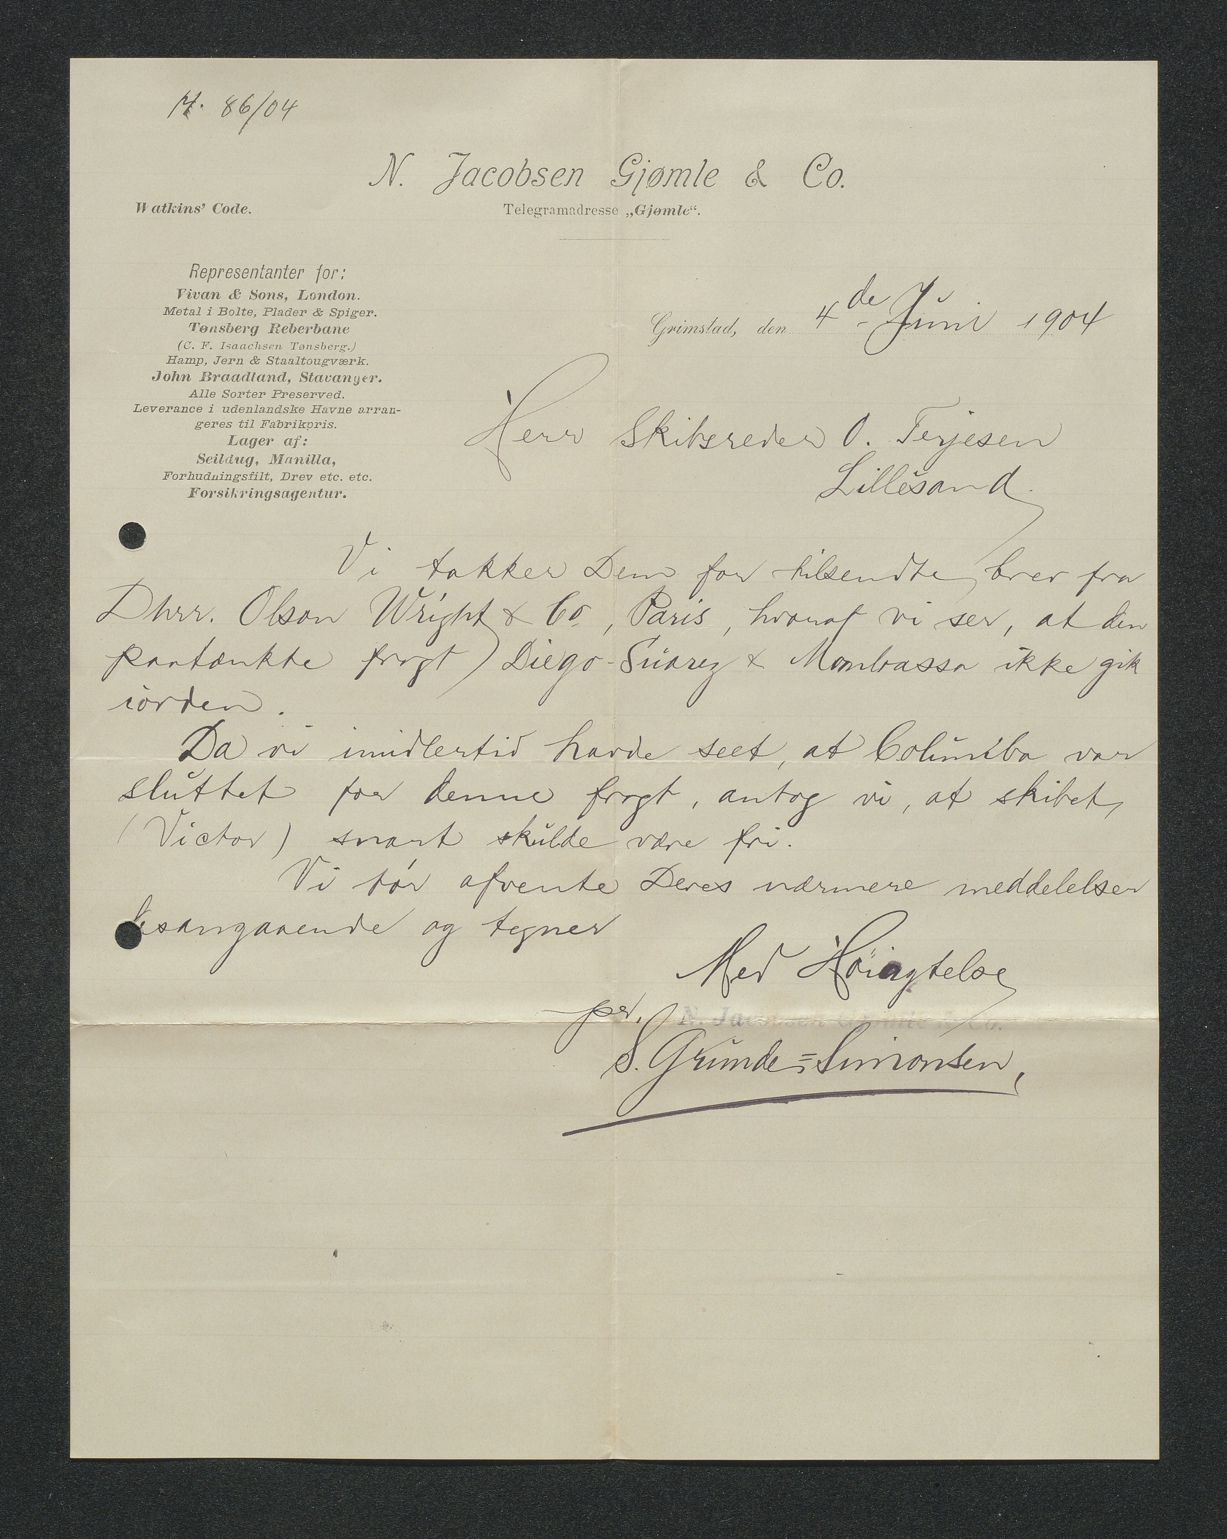 M. 86/04
N. Jacobsen Gjømle & Co.
Watkins' Code.
Telegramadresse „Gjømle“.
Representanter for:
Vivan & Sons, London.
Metal i Bolte, Plader & Spiger.
Tønsberg Reberbane
(C. F. Isaachsen Tønsberg.)
Hamp, Jern & Staaltougværk.
John Braadland, Stavanger.
Alle Sorter Preserved.
Leverance i udenlandske Havne arran-
geres til Fabrikpris.
Lager af:
Seildug, Manilla,
Forhudningsfilt, Drev etc. etc.
Forsikringsagentur.
Grimstad, den 4de Juni 1904
Herr Skibsreder O. Terjesen
Lillesand
Vi takker Dem for tilsendte brev fra
Dhrr. Olson Wright & Co, Paris, hvoraf vi ser, at den
paatænkte fragt Diego-Suarez & Mombassa ikke gik
iorden.
Da vi imidlertid havde seet, at Columba var
sluttet for denne fragt, antog vi, at skibet
(Victor) snart skulde være fri.
Vi tør afvente Deres nærmere meddelelser
desangaaende og tegner
Med Høiagtelse
per. N. Jacobsen Gjømle & Co.
S. Grunde=Simonsen,